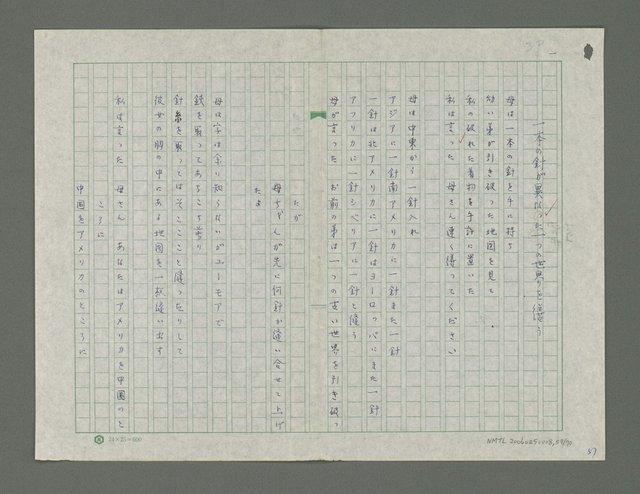 一本の針が異なった一つの世界を縫う
母は一本の針を手に持ち
幼い弟が引き破った地図を見て
私の破れた着物を手許に置いた
私は言った 母さん速く縫ってください
母は中東から一針入れ
アジアに一針南アメリカに一針また一針
一針は北アメリカに一針はヨーロッパにまた一針
アフリカに一針シベリアに一針と縫う
母が言った お前の弟は一つの古い世界を引き破っ
たが
母ちゃんが先に何針か縫い合せて上げ
たよ
母は字は余り知らないがユーモアで
鋏を取ってあちこち剪り
針糸を取ってはそこここと縫ったりして
彼女の胸の中にある地図を一枚縫い出す
私は言った 母さん あなたはアメリカを中国のと
ころに
中国をアメリカのところに
24×25=600
NMTL 20060251008,59/90
57